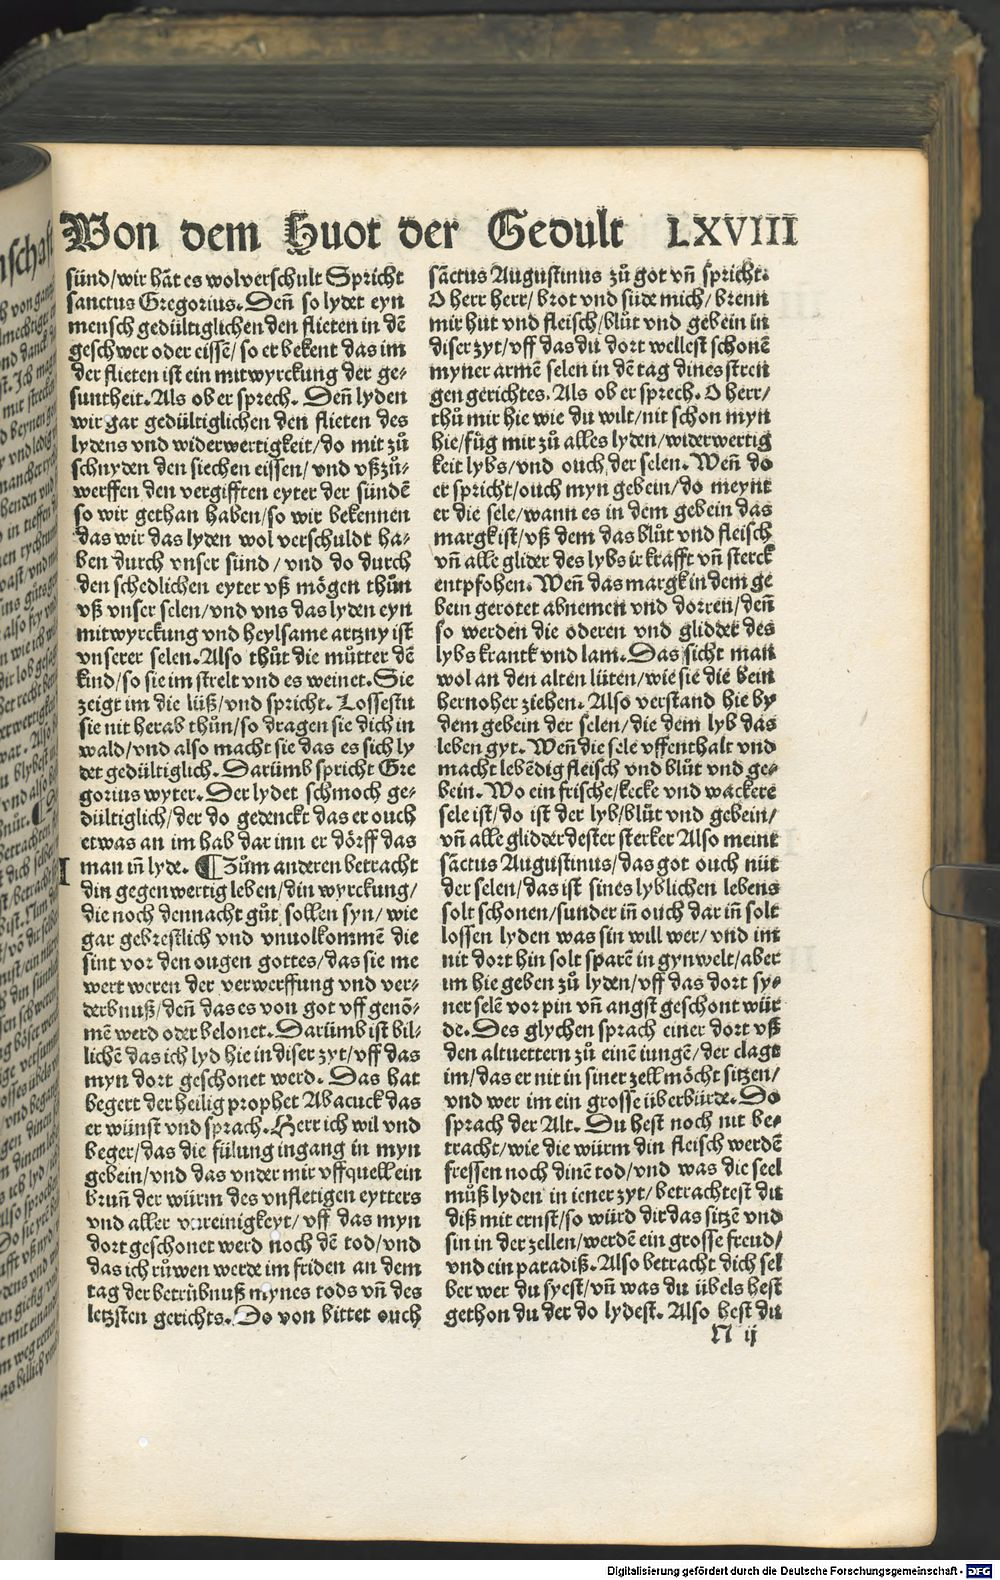 Von dem Huot der Gedult LXVIII
sünd/wir hāt es wolverschult Spricht
sanctus Gregorius. Deñ so lydet eyn
mensch gedültiglichen den flieten in dē
geschwer oder eissē/so er bekent das im
der flieten ist ein mitwyrckung der ge-
suntheit. Als ob er sprech. Deñ lyden
wir gar gedültiglichen den flieten des
lydens vnd widerwertigkeit/do mit zů
schnyden den siechen eissen/vnd vßzů-
werffen den vergifften eyter der sündē
so wir gethan haben/so wir bekennen
das wir das lyden wol verschuldt ha-
ben durch vnser sünd/vnd do durch
den schedlichen eyter vß mögen thůn
vß vnser selen/vnd vns das lyden eyn
mitwyrckung vnd heylsame artzny ist
vnserer selen. Also thůt die můtter dē
kind/so sie im strelt vnd es weinet. Sie
zeigt im die lüß/vnd spricht. Lossestu
sie nit herab thůn/so dragen sie dich in
wald/vnd also macht sie das es sich ly
det gedültiglich. Darümb spricht Gre
gorius wyter. Der lydet schmoch ge-
dültiglich/der do gedenckt das er ouch
etwas an im hab dar inn er dörff das
man iñ lyde. ¶ Zům anderen betracht
din gegenwertig leben/din wyrckung/
die noch dennacht gůt sollen syn/wie
gar gebrestlich vnd vnuolkommē die
sint vor den ougen gottes/das sie me
wert weren der verwerffung vnd ver-
derbnuß/deñ das es von got vff genō-
mē werd oder belonet. Darümb ist bil-
lichē das ich lyd hie in diser zyt/vff das
myn dort geschonet werd. Das hat
begert der heilig prophet Abacuck das
er wünst vnd sprach. Herr ich wil vnd
beger/das die fülung ingang in myn
gebein/vnd das vnder mir vffquell ein
bruñ der würm des vnfletigen eytters
vnd aller vnreinigkeyt/vff das myn
dort geschonet werd noch dē tod/vnd
das ich růwen werde im friden an dem
tag der betrůbnuß mynes tods vñ des
letzsten gerichts. Do von bittet ouch
sāctus Augustinus zů got vñ spricht.
O herr herr/brot vnd süde mich/brenn
mir hut vnd fleisch/blůt vnd gebein in
diser zyt/vff das du dort wellest schonē
myner armē selen in dē tag dines stren
gen gerichtes. Als ob er sprech. O herr/
thů mir hie wie du wilt/nit schon myn
hie/fůg mir zů alles lyden/widerwertig
keit lybs/vnd ouch der selen. Weñ do
er spricht/ouch myn gebein/do meynt
er die sele/wann es in dem gebein das
margk ist/vß dem das blůt vnd fleisch
vñ alle glider des lybs ir krafft vñ sterck
entpfohen. Weñ das margk in dem ge
bein gerotet abnemen vnd dorren/deñ
so werden die oderen vnd glidder des
lybs kranck vnd lam. Das sicht man
wol an den alten lüten/wie sie die bein
hernoher ziehen. Also verstand hie by
dem gebein der selen/die dem lyb das
leben gyt. Weñ die sele vffenthalt vnd
macht lebēdig fleisch vnd blůt vnd ge-
bein. Wo ein frische/kecke vnd wackere
sele ist/do ist der lyb/blůt vnd gebein/
vñ alle glidder dester sterker Also meint
sāctus Augustinus/das got ouch nüt
der selen/das ist sines lyblichen lebens
solt schonen/sunder iñ ouch dar iñ solt
lossen lyden was sin will wer/vnd im
nit dort hin solt sparē in gynwelt/aber
im hie geben zů lyden/vff das dort sy-
ner selē vor pin vñ angst geschont wür
de. Des glychen sprach einer dort vß
den altuettern zů einē iungē/der clagt
im/das er nit in siner zell möcht sitzen/
vnd wer im ein grosse überbürde. Do
sprach der Alt. Du hest noch nit be-
tracht/wie die würm din fleisch werdē
fressen noch dinē tod/vnd was die seel
můß lyden in iener zyt/betrachtest du
diß mit ernst/so würd dir das sitzē vnd
sin in der zellen/werdē ein grosse freud/
vnd ein paradiß. Also betracht dich sel
ber wer du syest/vñ was du übels hest
gethon du der do lydest. Also hest du
N ij
Digitalisierung gefördert durch die Deutsche Forschungsgemeinschaft - DFG